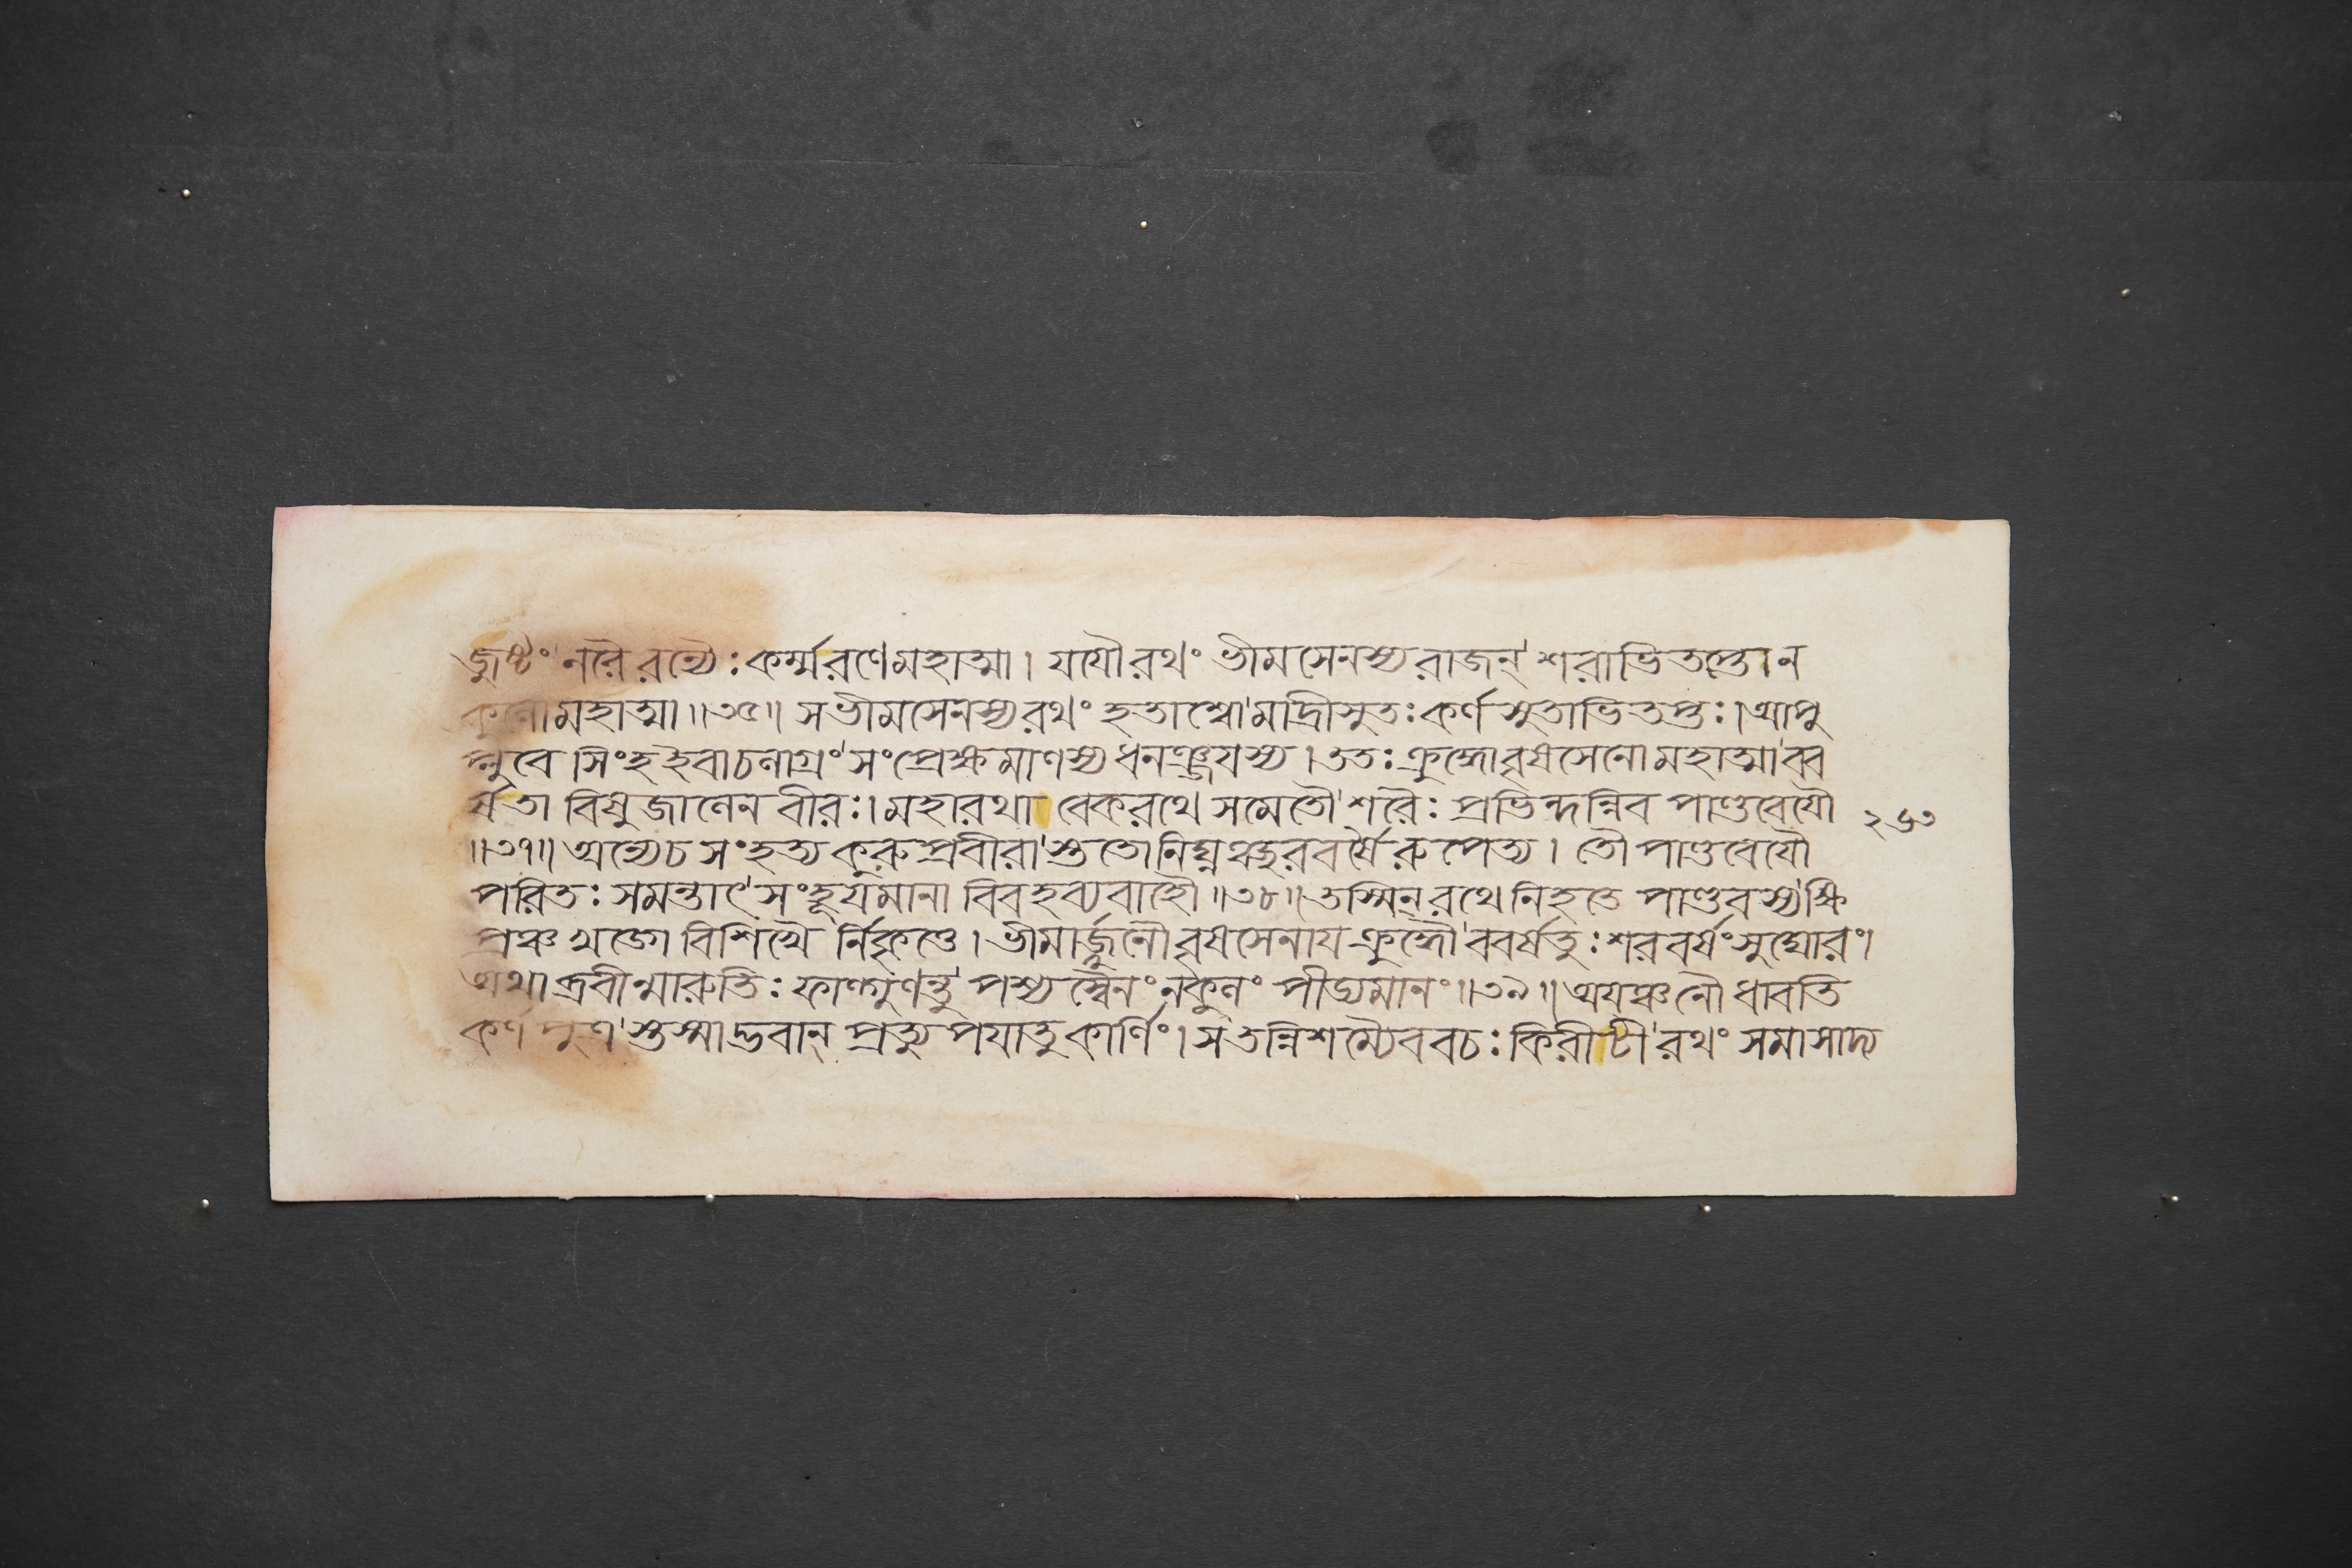 জুষ্টং নরৈরন্যৈঃ কর্ম্মরণেমহাত্মা। যযৌরথং ভীমসেনস্যরাজন্ শরাভিতপ্তোন
কুলোমহাত্মা॥৩৫॥ সভীমসেনস্যরথং হতাশ্বো মাদ্রীসুতঃ কর্ণসুতাভিতপ্তঃ। আপু
প্লুবে সিংহইবাচলাগ্রং সংপ্রেক্ষমাণস্যধনঞ্জযস্য। ততঃ ক্রুদ্ধোবৃষসেনোমহাত্মা বব
র্ষতা বিষুজালেন বীরঃ। মহারথা বেকরথে সমেতৌ শরৈঃ প্রভিন্দন্নিব পাণ্ডবেযৌ
॥৩৭॥ অন্যেচ সংহত্য কুরুপ্রবীরা স্ততোনিঘ্নঞ্ছরবর্যৈরুপেত্য। তৌ পাণ্ডবেযৌ
পরিতঃ সমন্তাৎ সংহূযমানা বিবহব্যবাহৌ॥৩৮॥ তস্মিন্ রথে নিহতে পাণ্ডবস্য ক্ষি
প্রঞ্চ খড্গে বিশিখৈ র্নিকৃত্তে। ভীমার্জ্জুনৌ বৃষসেনায ক্রুদ্ধৌ ববর্ষতুঃ শরবর্ষং সুঘোরং।
অথাব্রবীন্মারুতিঃ ফাল্গুণন্তু পশ্যস্বৈনং নকুলং পীড্যমানং॥৩৯॥ অযঞ্চনৌ ধাবতি
কর্ণপুত্র স্তস্মাদ্ভবান্ প্রত্যুপযাতু কার্ণিং। স তন্নিশম্যৈববচঃ কিরীটী রথং সমাসাদ্য
২৬৩